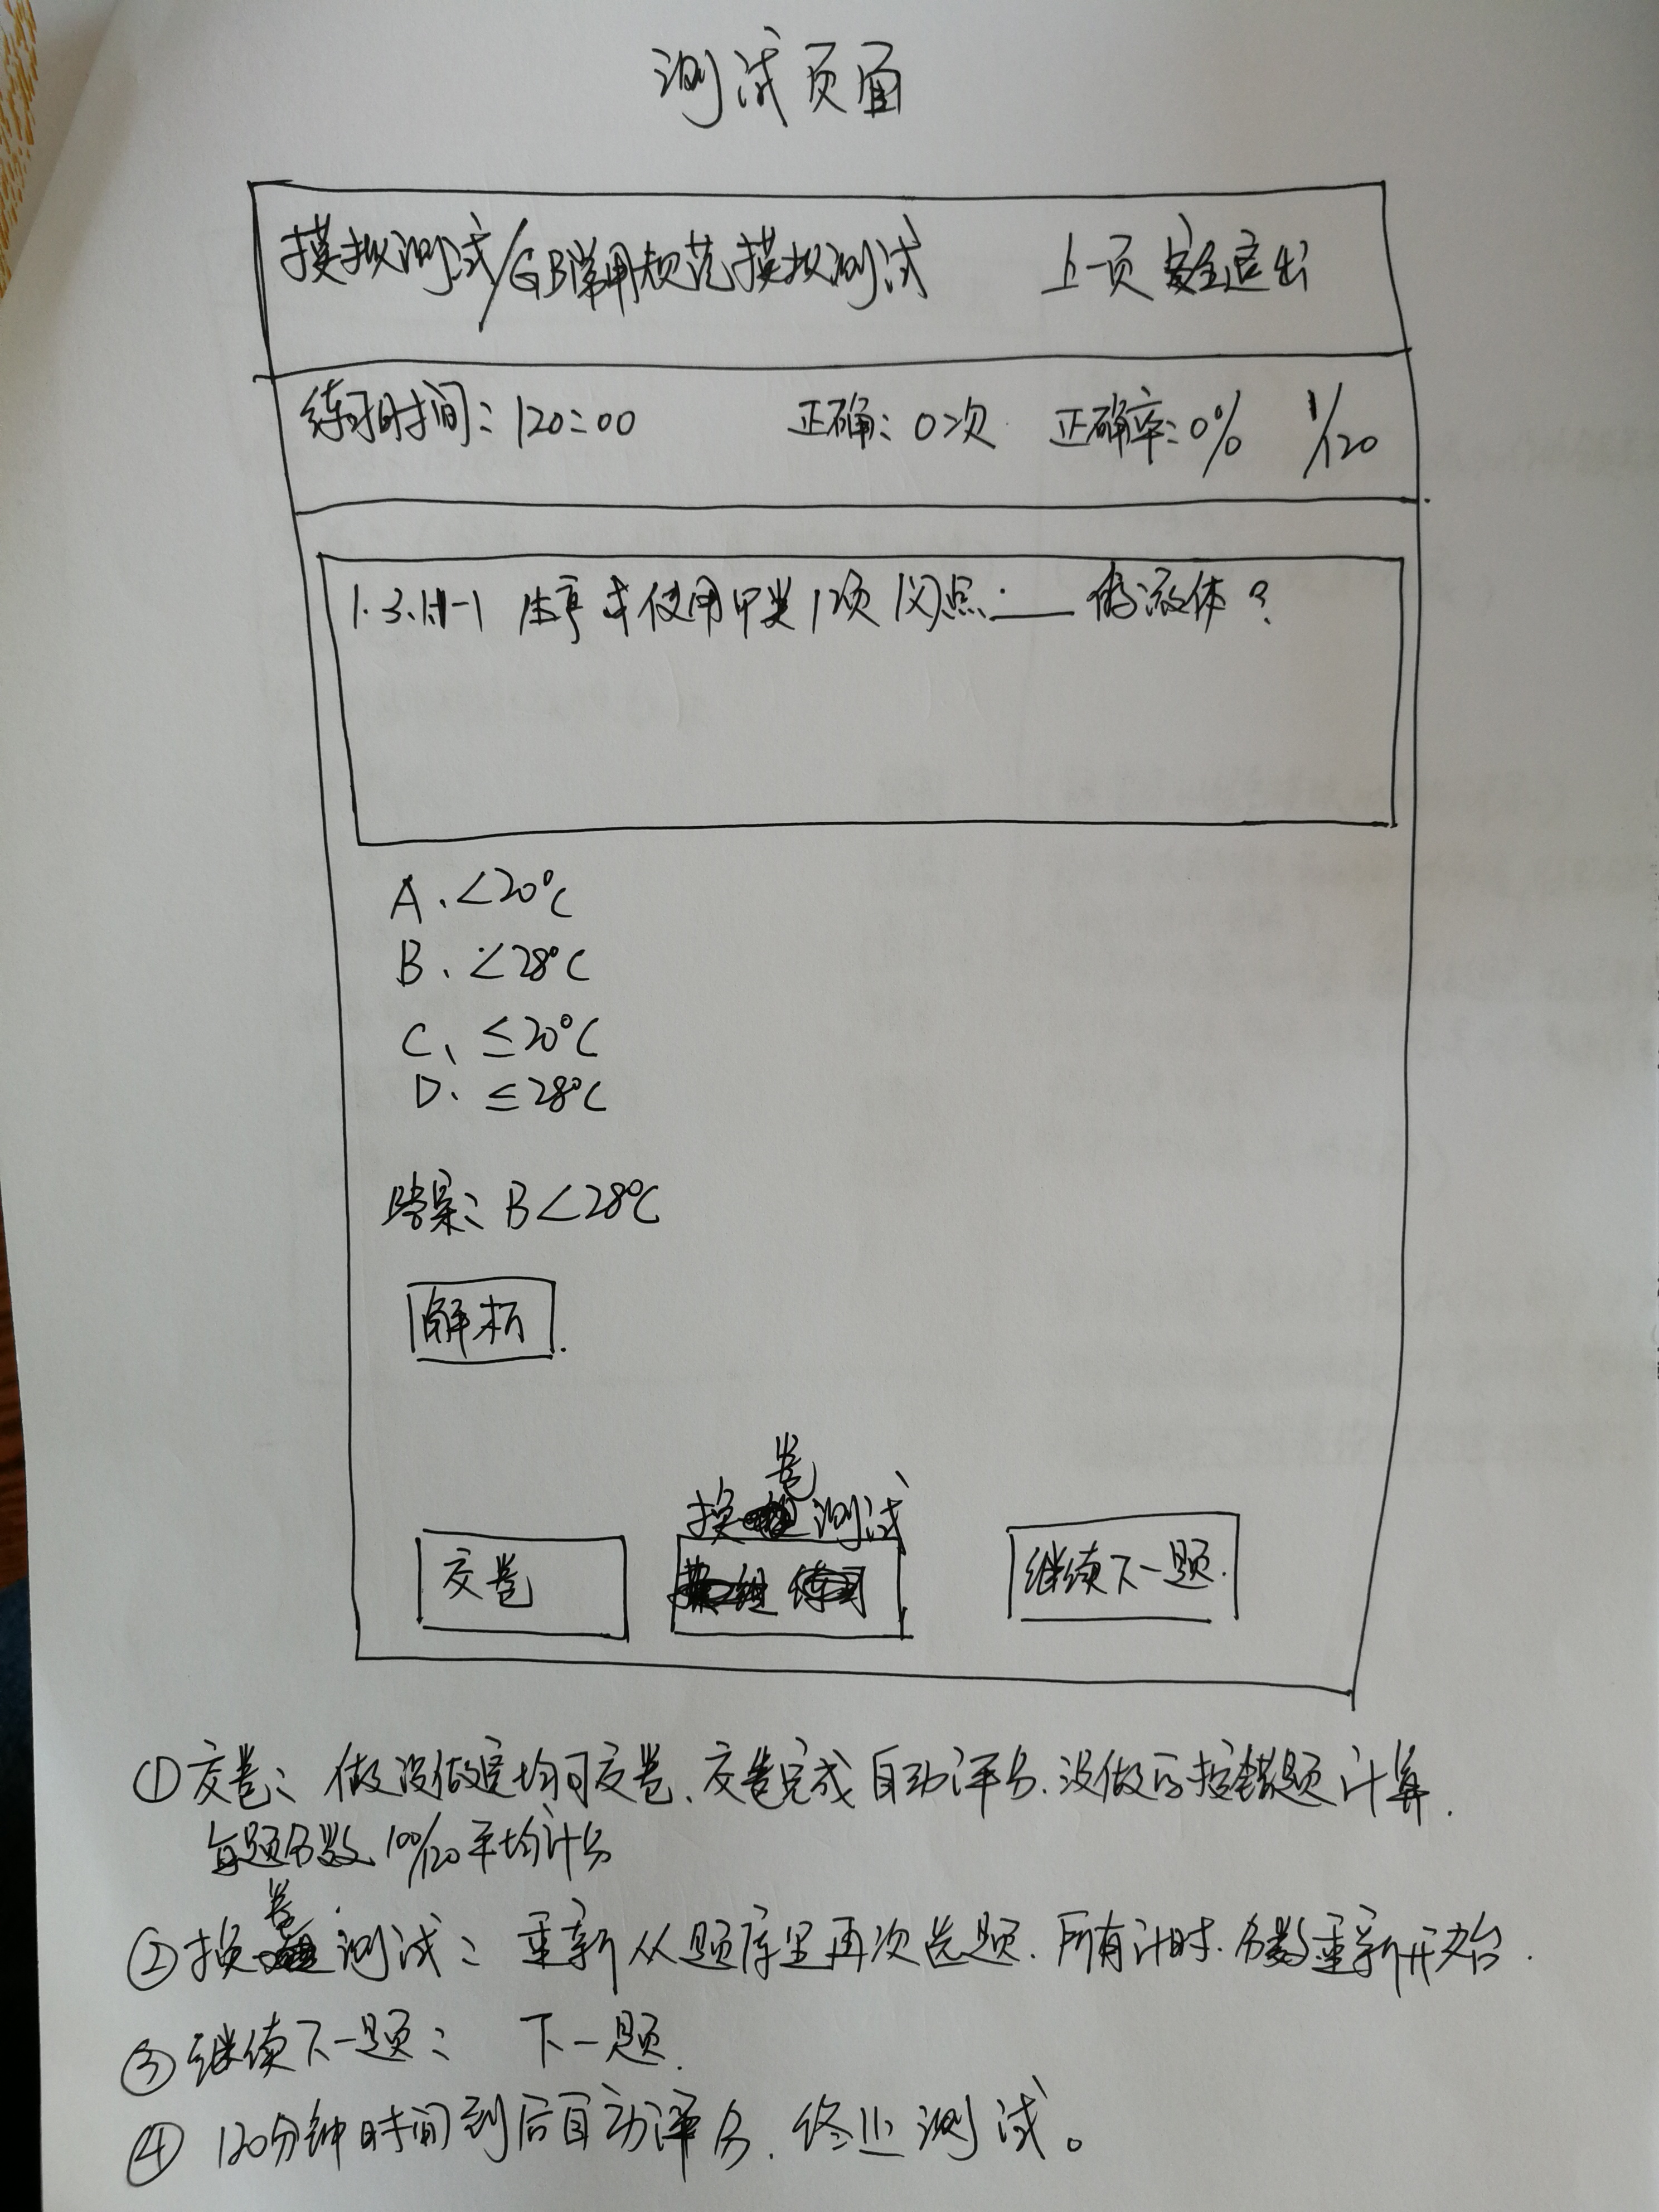 测试页面
模拟测试/GB常用规范模拟测试 上一页 安全退出
练习时间：120:00 正确：0次 正确率：0% 1/120
1.3.1.1-1 生产或使用甲类1项闪点：___ 的液体？
A、<20℃
B、<28℃
C、≤20℃
D、≤28℃
答案：B<28℃
解析
换卷测试
交卷 继续下一题
①交卷：做没做完均可交卷、交卷完成自动评分、没做的按错题计算.
每题分数100/120平均计分
②换卷测试：重新从题库里再次选题、所有计时、分数重新开始.
③继续下一题：下一题.
④120分钟时间到后自动评分、终止测试。